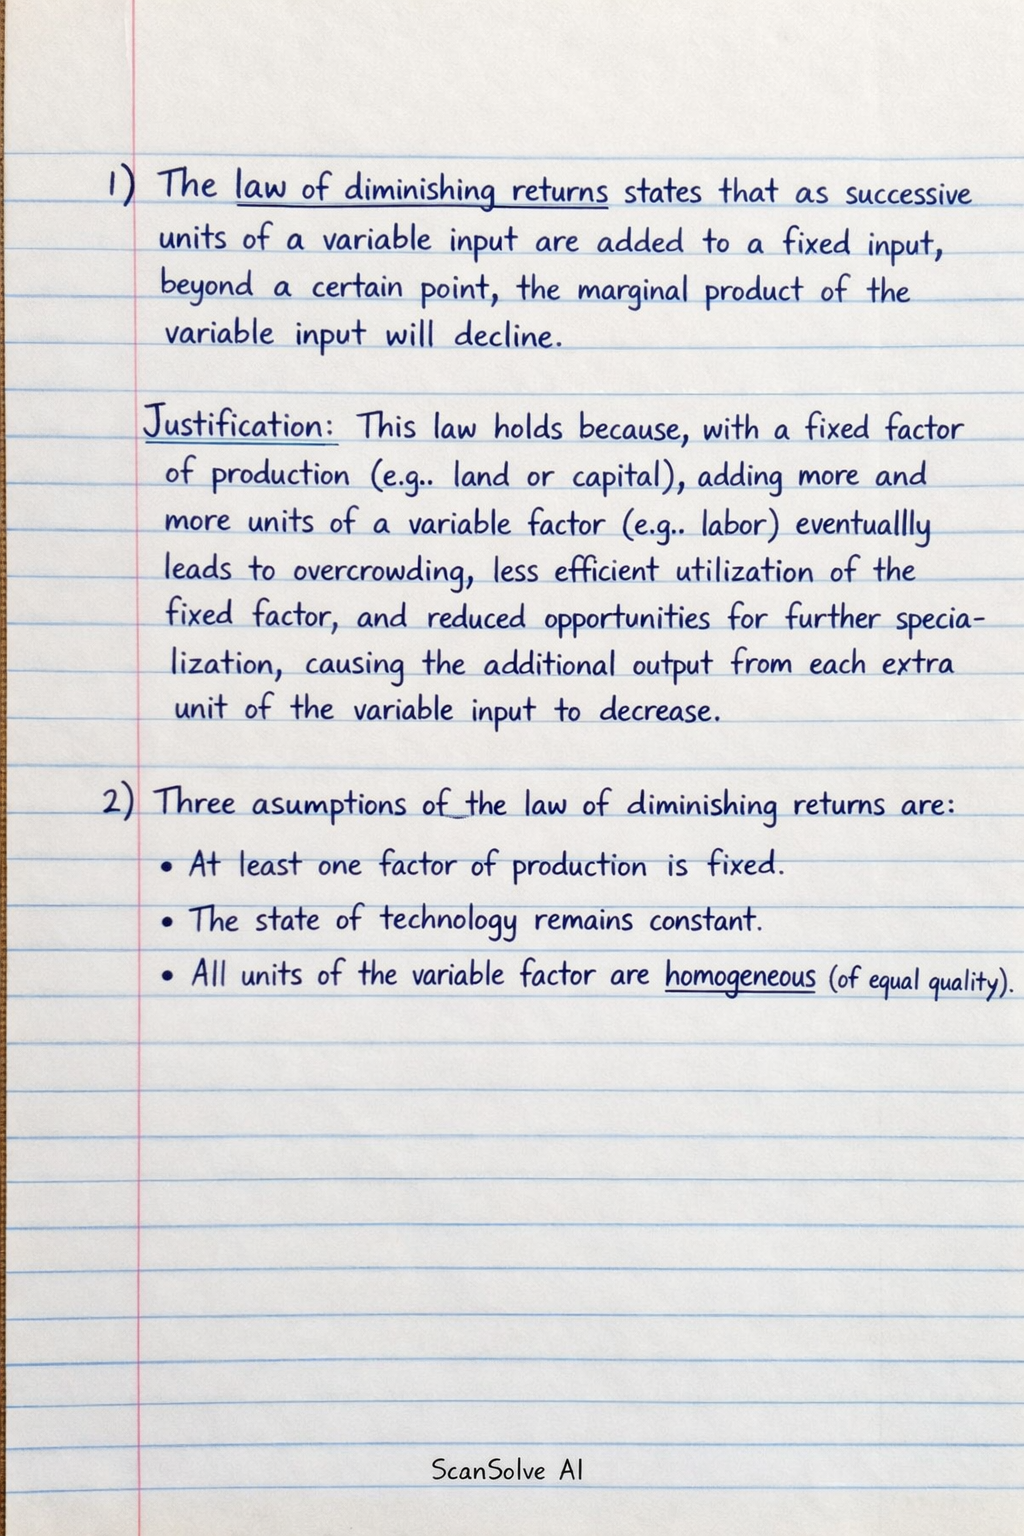 1) The law of diminishing returns states that as successive
units of a variable input are added to a fixed input,
beyond a certain point, the marginal product of the
variable input will decline.
Justification: This law holds because, with a fixed factor
of production (e.g.. land or capital), adding more and
more units of a variable factor (e.g.. labor) eventuallly
leads to overcrowding, less efficient utilization of the
fixed factor, and reduced opportunities for further specia-
lization, causing the additional output from each extra
unit of the variable input to decrease.
2) Three asumptions of the law of diminishing returns are:
• At least one factor of production is fixed.
• The state of technology remains constant.
• All units of the variable factor are homogeneous (of equal quality).
ScanSolve AI